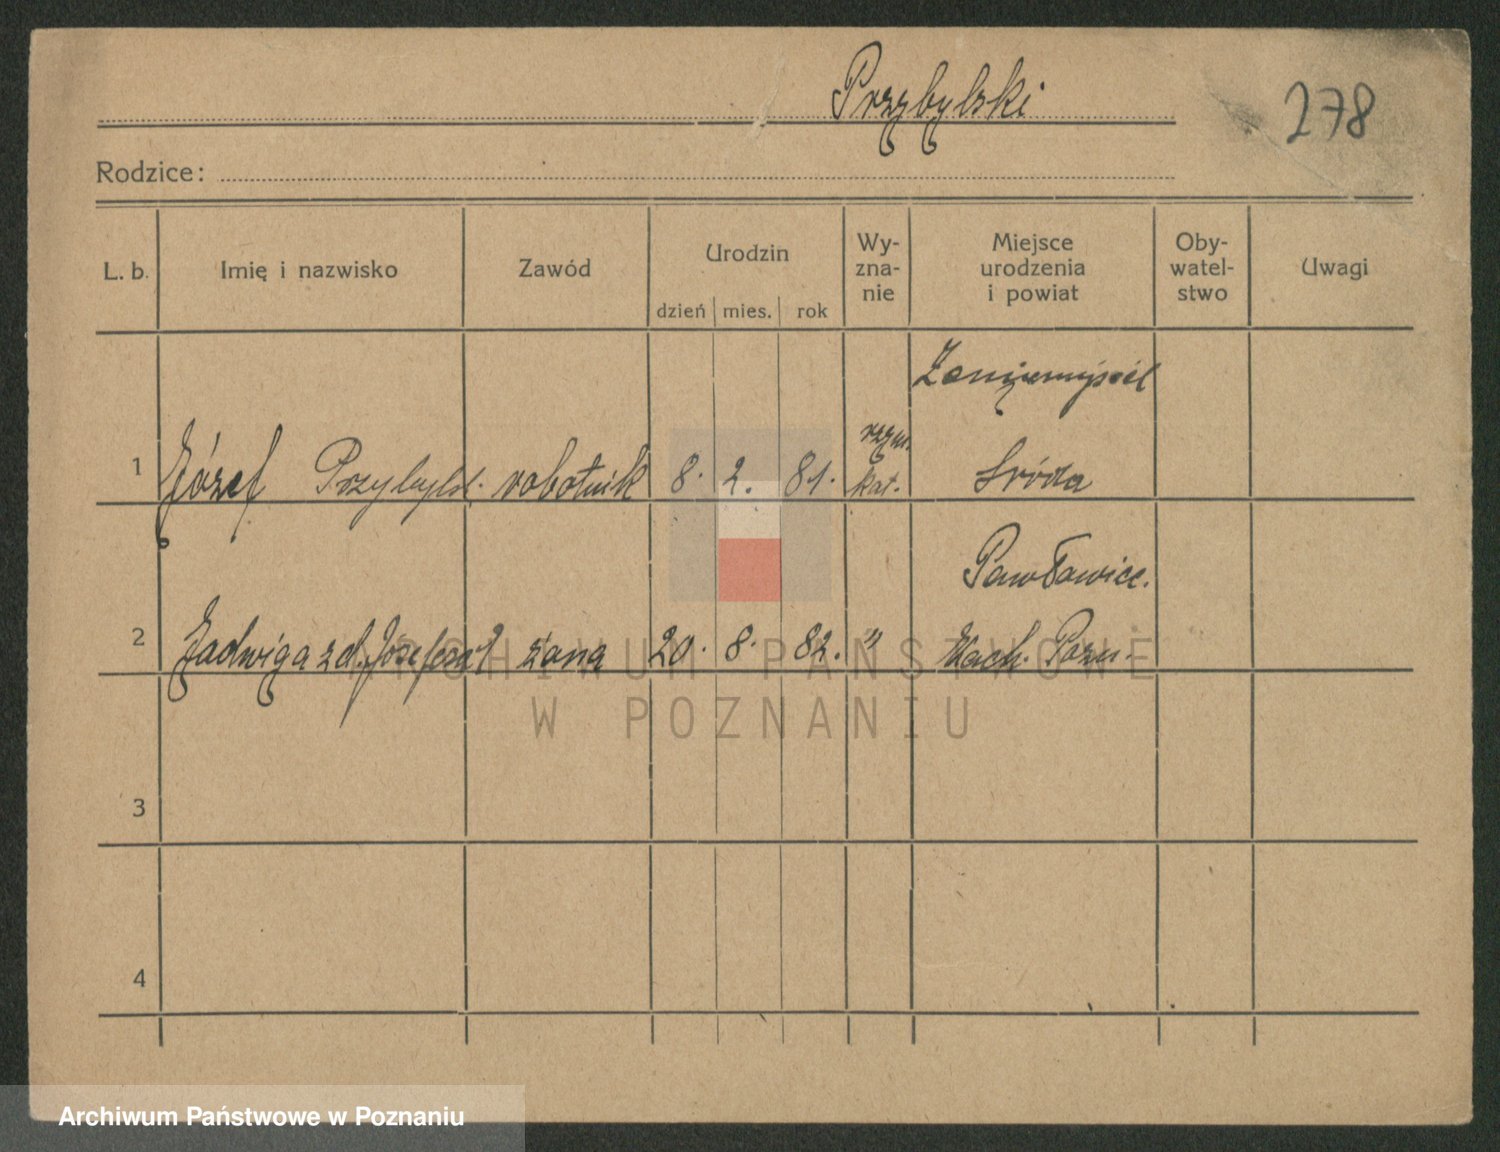 Przybylski
278
Rodzice:
L. b.
Imię i nazwisko
Zawód
Urodzin
dzień
mies.
rok
Wy-
zna-
nie
Miejsce
urodzenia
i powiat
Oby-
watel-
stwo
Uwagi
Zaniemyśl
1
Józef Przybylsk. robotnik 8. 2. 81. rzym.
kat. Sróda
Pawłowice.
2
Jadwiga z d. Józefczak żona 20. 8. 82. " Zach. Pozn.
3
4
ARCHIWUM PAŃSTWOWE
W POZNANIU
Archiwum Państwowe w Poznaniu